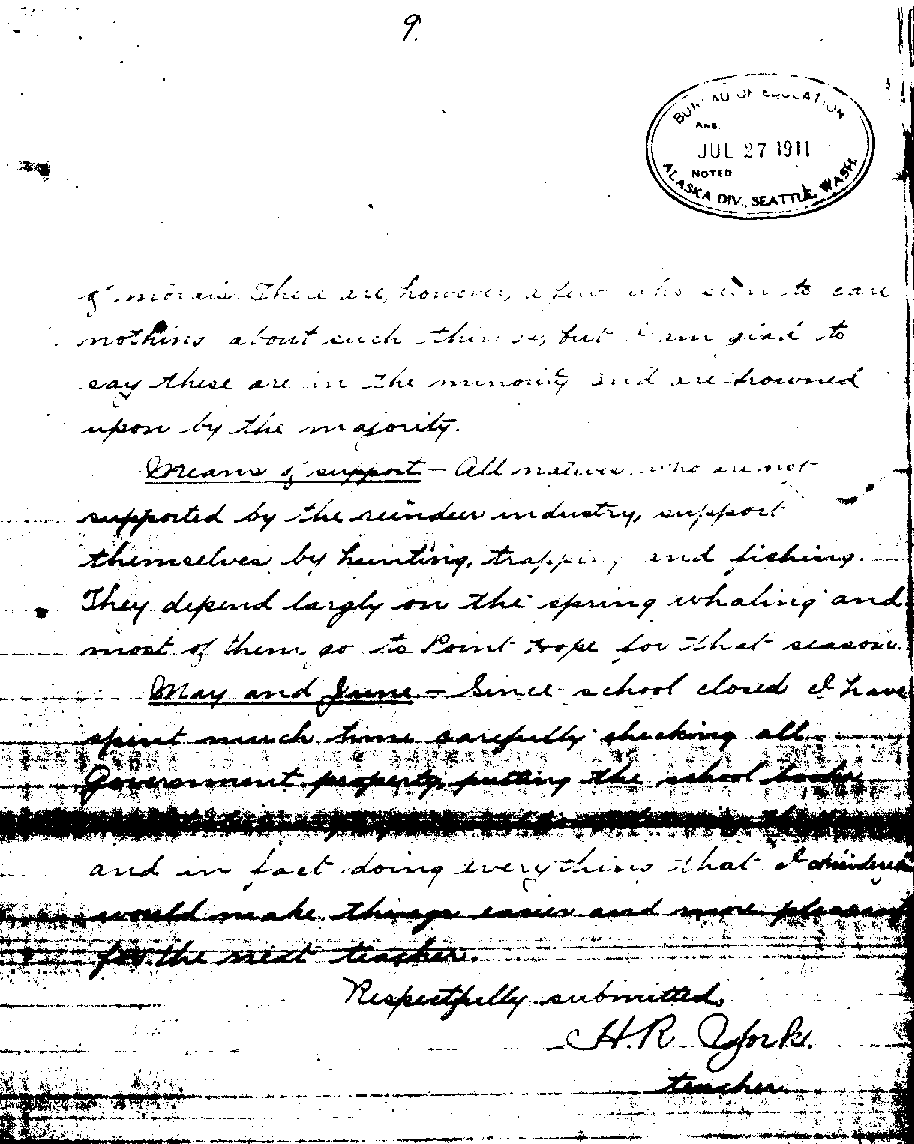 9.
BUREAU OF EDUCATION
ANS.
JUL 27 1911
NOTED
ALASKA DIV., SEATTLE, WASH.
of morals. There are, however, a few who seem to care
nothing about such things, but I am glad to
say these are in the minority and are frowned
upon by the majority.
Means of support – All natives who are not
supported by the reindeer industry, support
themselves by hunting, trapping and fishing.
They depend largly on the spring whaling and
most of them go to Point Hope for that season.
May and June – Since school closed I have
spent much time carefully checking all
Government property, putting the school books
and in fact doing everything that I considered
would make things easier and more pleasant
for the next teacher.
Respectfully submitted,
H.R. York.
teacher.